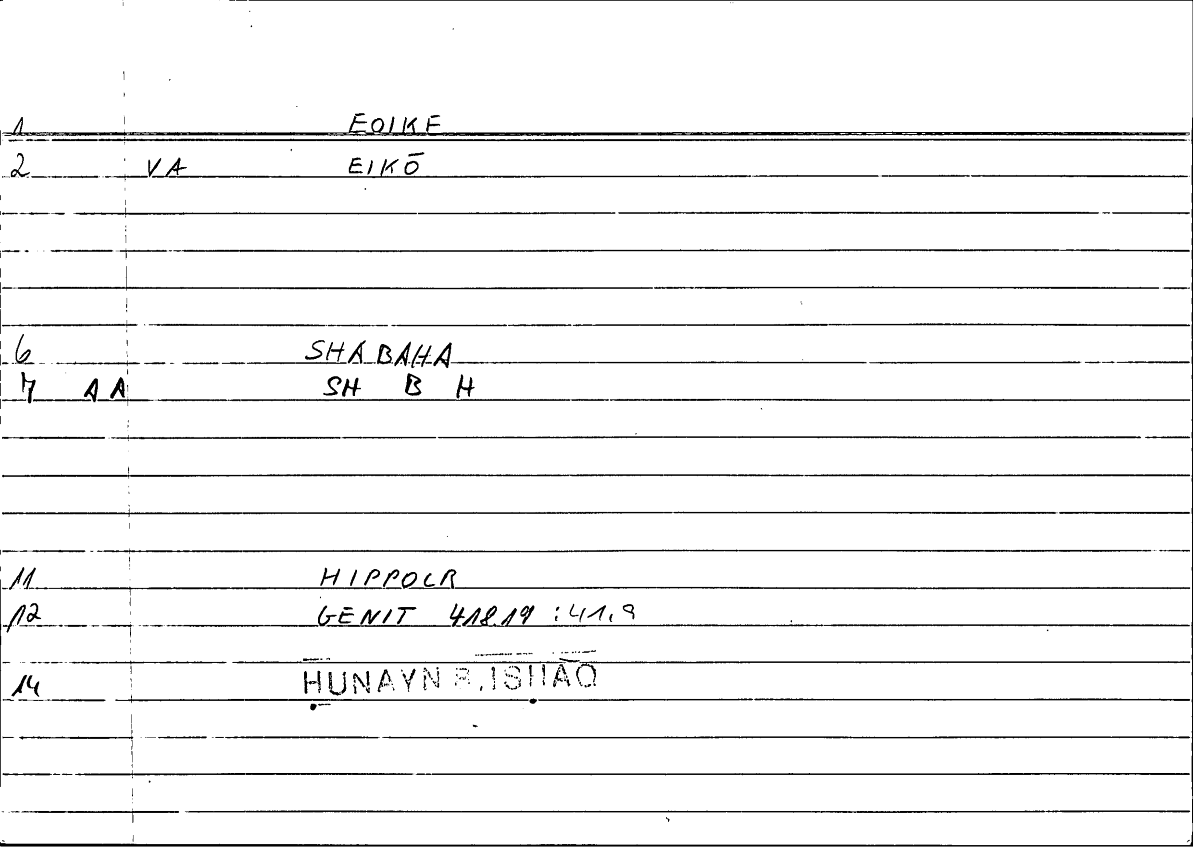 1 EOIKE
2 VA EIKŌ
6 SHABAHA
7 AA SH B H
11 HIPPOCR
12 GENIT 418.19 : 41,9
14 ḤUNAYN B. ISḤĀQ